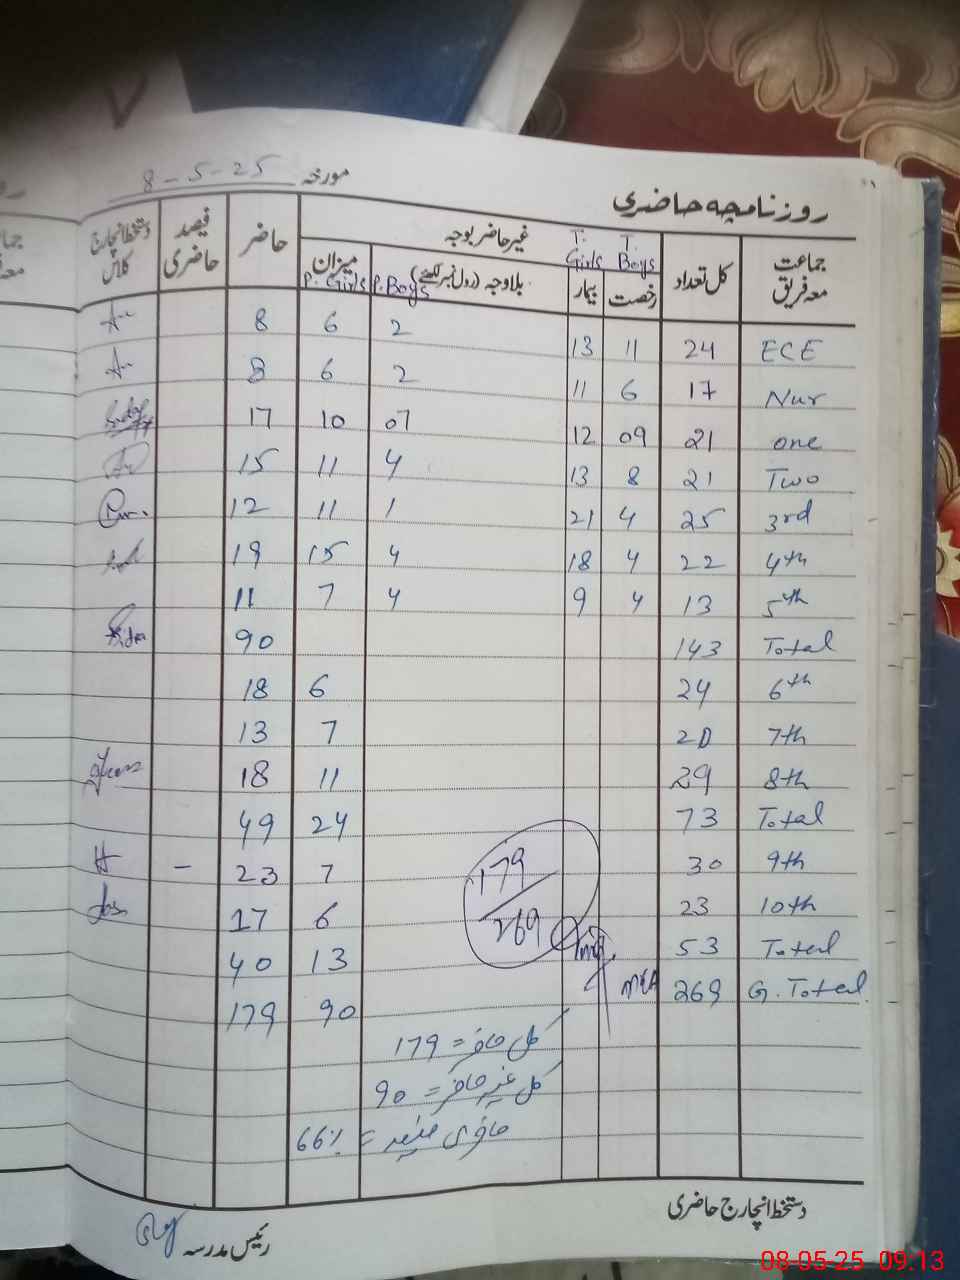 مورخہ 8-5-25
روزنامچہ حاضری
جماعت معہ فریق کل تعداد غیر حاضر بوجہ حاضر فیصد حاضری دستخط انچارج کلاس
T. Boys رخصت T. Girls بیمار بلاوجہ (رول نمبر لکھئے) P. Boys میزان P. Girls
ECE 24 11 13 2 6 8
Nur 17 6 11 2 6 8
one 21 09 12 07 10 17
Two 21 8 13 4 11 15
3rd 25 4 21 1 11 12
4th 22 4 18 4 15 19
5th 13 4 9 4 7 11
Total 143 90
6th 24 6 18
7th 20 7 13
8th 29 11 18
Total 73 24 49
9th 30 7 23 –
10th 23 6 17
Total 53 13 40
G. Total 269 90 179
179/269
کل حاضر = 179
کل غیر حاضر = 90
حاضری فیصد = 66%
دستخط انچارج حاضری
رئیس مدرسہ
08-05-25 09:13